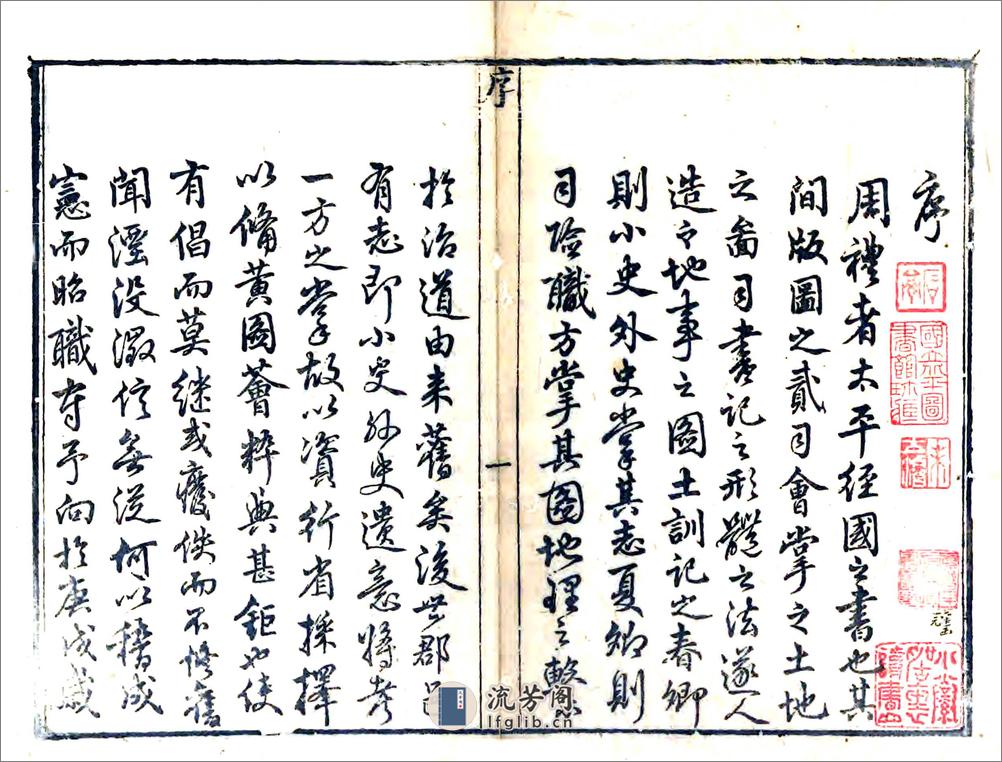 序
周禮者太平経國之書也其
間版圖之貳司會掌之土地
之啚司書記之形體之法遂人
造之地事之圖土訓記之春卿
則小史外史掌其志夏卿則
司險職方掌其圖地理之繫
序
一
於治道由来舊矣後世郡邑
有志即小史外史遺意將考
一方之掌故以資行省採擇
以俻黃圖薈粹典甚鉅也使
有倡而莫継或癈佚而不脩舊
聞湮没澂信無從何以稽成
憲而昭職守予向於庚戌歲
國立圖
書館珎
流芳阁
lfglib.cn